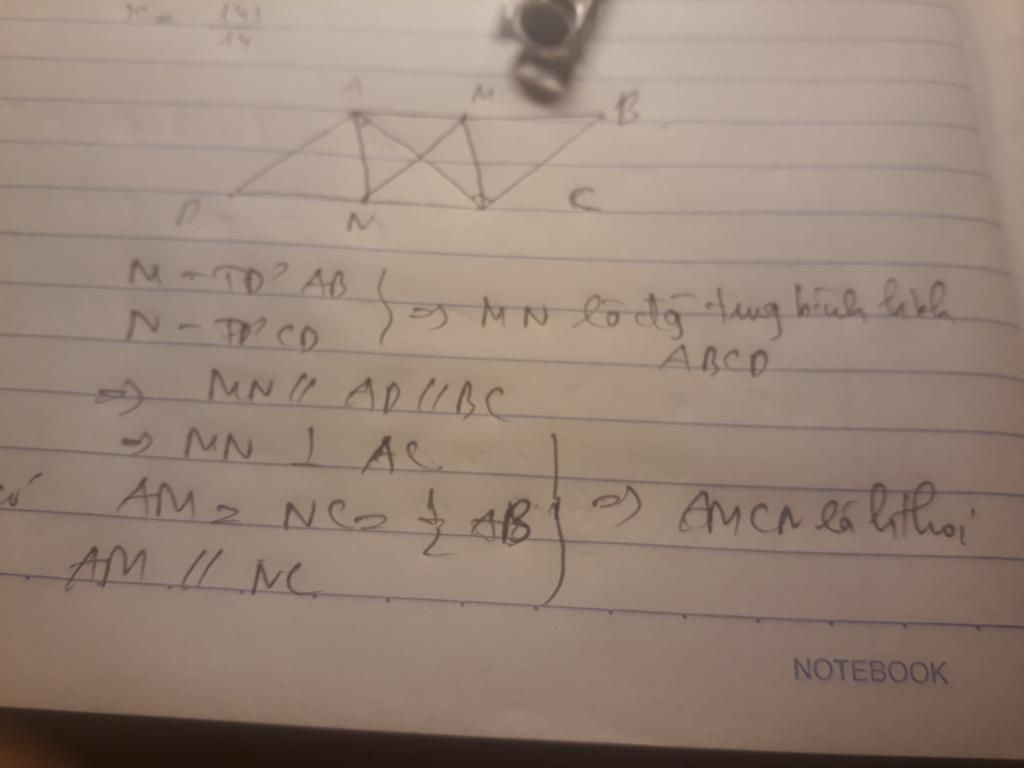 x = 141/14
A M B
D N C
M - TĐ' AB
N - TĐ' CD } => MN là đg tung bình hình
ABCD
=> MN // AD // BC
=> MN ⊥ AC
có AM = NC = 1/2 AB } => AMCN là h thoi
AM // NC
NOTEBOOK